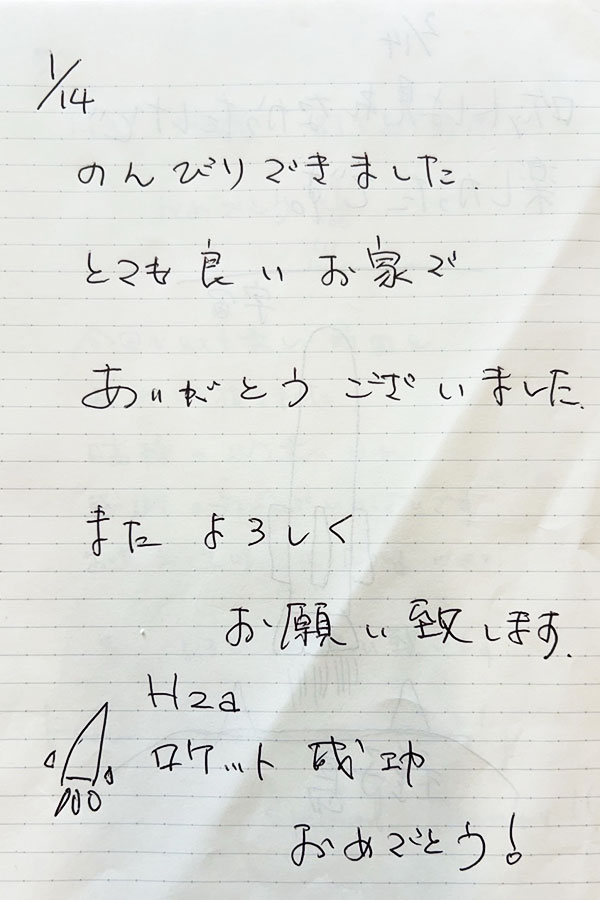 1/14
のんびりできました.
とても良いお家で
ありがとうございました.
また よろしく
お願い致します.
H2a
ロケット 成功
おめでとう!